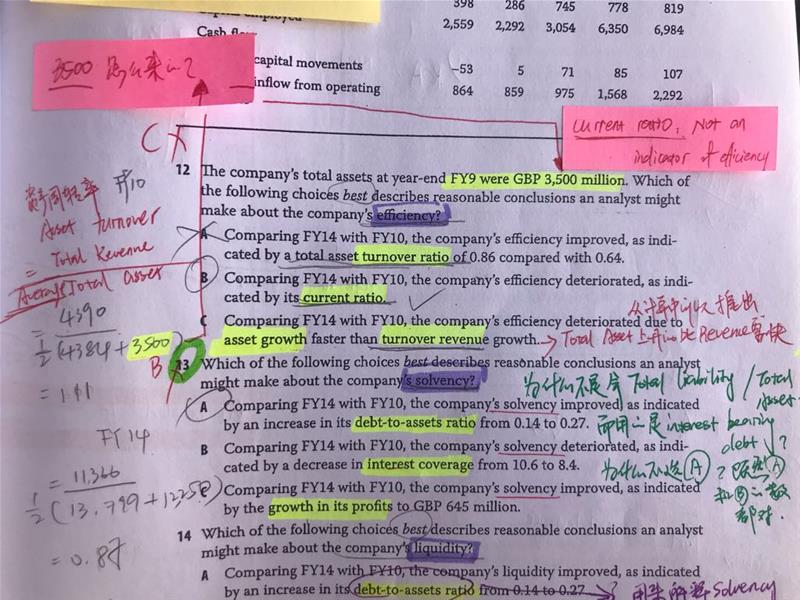 398 286 745 778 819
Capital employed 2,559 2,292 3,054 6,350 6,984
Cash flow
capital movements −53 5 71 85 107
inflow from operating 864 859 975 1,568 2,292
3500
current ratio: Not an
indicator of efficiency
12 The company's total assets at year-end FY9 were GBP 3,500 million. Which of
the following choices best describes reasonable conclusions an analyst might
make about the company's efficiency?
A Comparing FY14 with FY10, the company's efficiency improved, as indi-
cated by a total asset turnover ratio of 0.86 compared with 0.64.
B Comparing FY14 with FY10, the company's efficiency deteriorated, as indi-
cated by its current ratio.
C Comparing FY14 with FY10, the company's efficiency deteriorated due to
asset growth faster than turnover revenue growth.
Total Asset 上升的比 Revenue 要快
Asset turnover
= Total Revenue
Average Total asset
= 4390
1/2 (4384 + 3500)
= 1.11
FY 14
= 11,366
1/2 (13,799 + 12250)
= 0.87
B
13 Which of the following choices best describes reasonable conclusions an analyst
might make about the company's solvency?
A Comparing FY14 with FY10, the company's solvency improved, as indicated
by an increase in its debt-to-assets ratio from 0.14 to 0.27.
B Comparing FY14 with FY10, the company's solvency deteriorated, as indi-
cated by a decrease in interest coverage from 10.6 to 8.4.
C Comparing FY14 with FY10, the company's solvency improved, as indicated
by the growth in its profits to GBP 645 million.
为什么不是 Total Liability / Total
Asset
而用的是 interest bearing
debt?
为什么不选 A?
都对.
14 Which of the following choices best describes reasonable conclusions an analyst
might make about the company's liquidity?
A Comparing FY14 with FY10, the company's liquidity improved, as indicated
by an increase in its debt-to-assets ratio from 0.14 to 0.27.
用来解释 Solvency